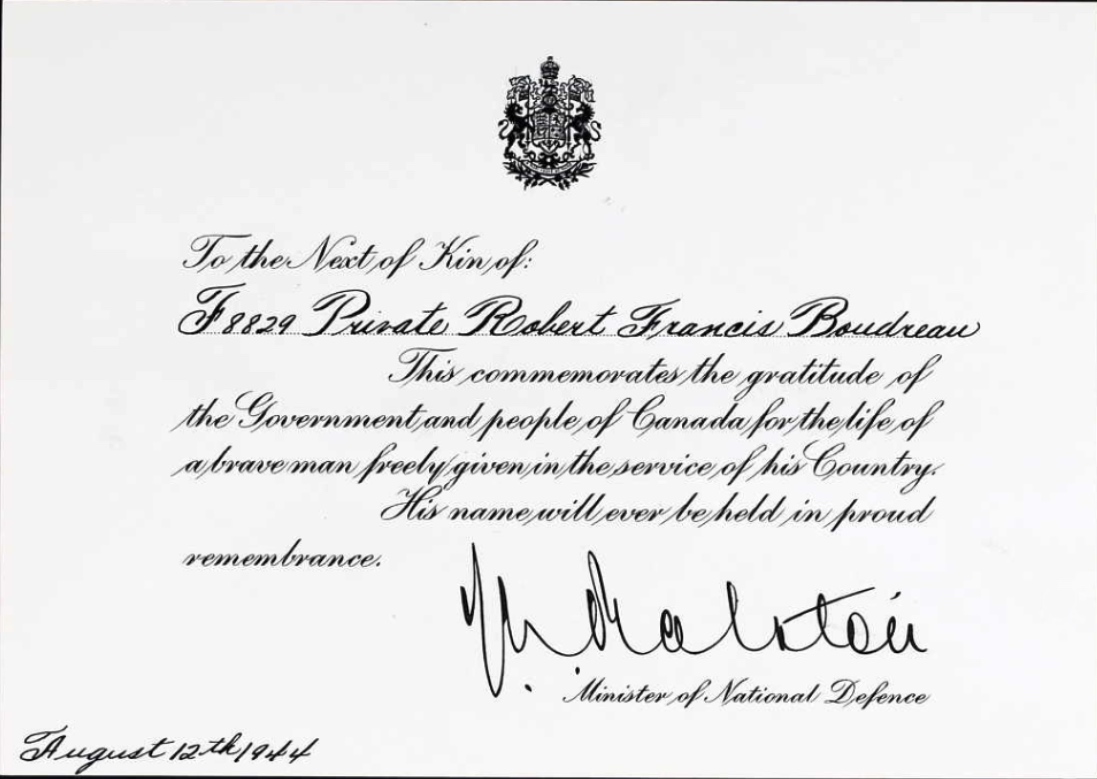 To the Next of Kin of:
F8829 Private Robert Francis Boudreau
This commemorates the gratitude of
the Government and people of Canada for the life of
a brave man freely given in the service of his Country.
His name will ever be held in proud
remembrance.
Ralston
Minister of National Defence
August 12th 1944